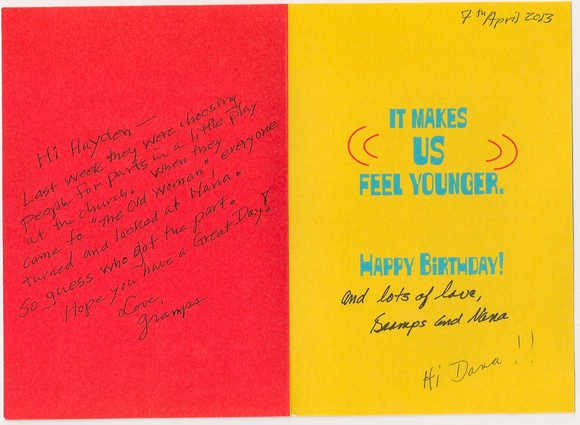 Hi Hayden —
Last week they were choosing
people for parts in a little play
at the church. When they
came to "The Old Woman", everyone
turned and looked at Nana.
So guess who got the part.
Hope you have a Great Day!
Love,
gramps
7th April 2013
IT MAKES
US
FEEL YOUNGER.
HAPPY BIRTHDAY!
and lots of love,
Gramps and Nana
Hi Dana !!